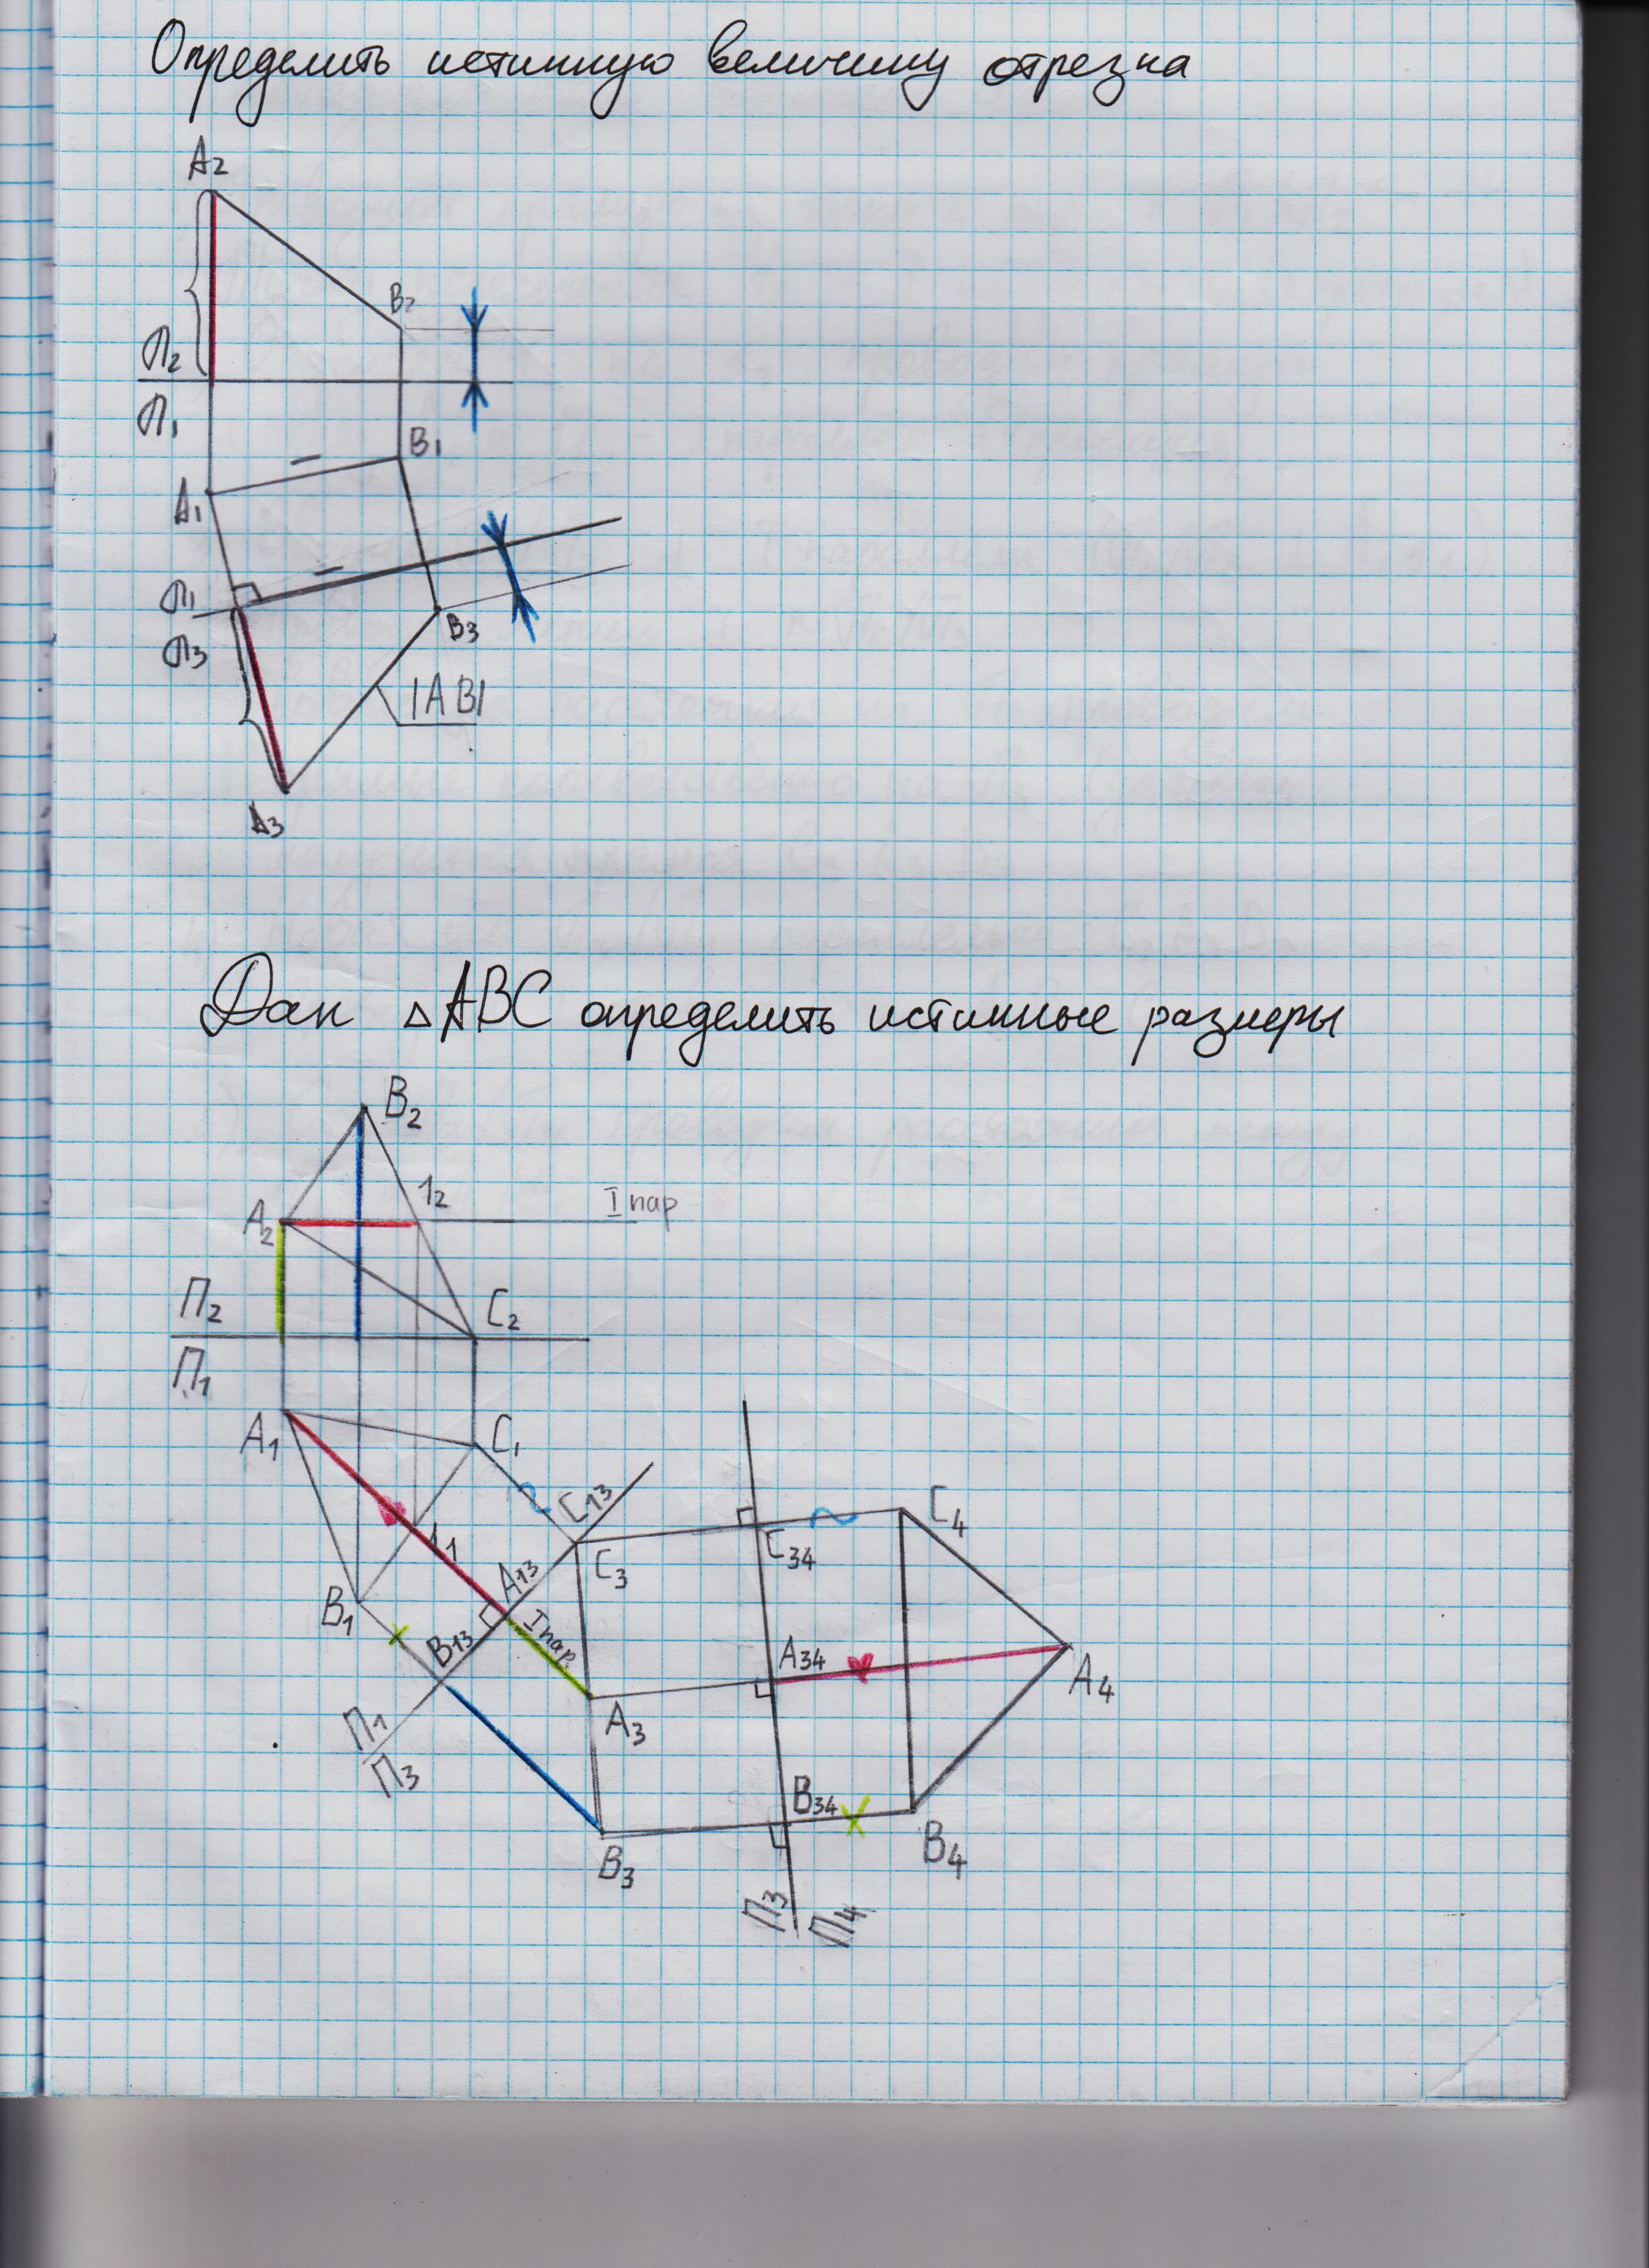 Определить истинную величину отрезка
A2
B2
П2
П1
B1
A1
П1
П3
B3
|AB|
A3
Дан △ABC определить истинные размеры
B2
12
I пар
A2
П2
C2
П1
A1
C1
C13
C4
11
C3
C34
A13
B1
I пар.
B13
A34
A4
П1
A3
П3
B34
B4
B3
П3
П4